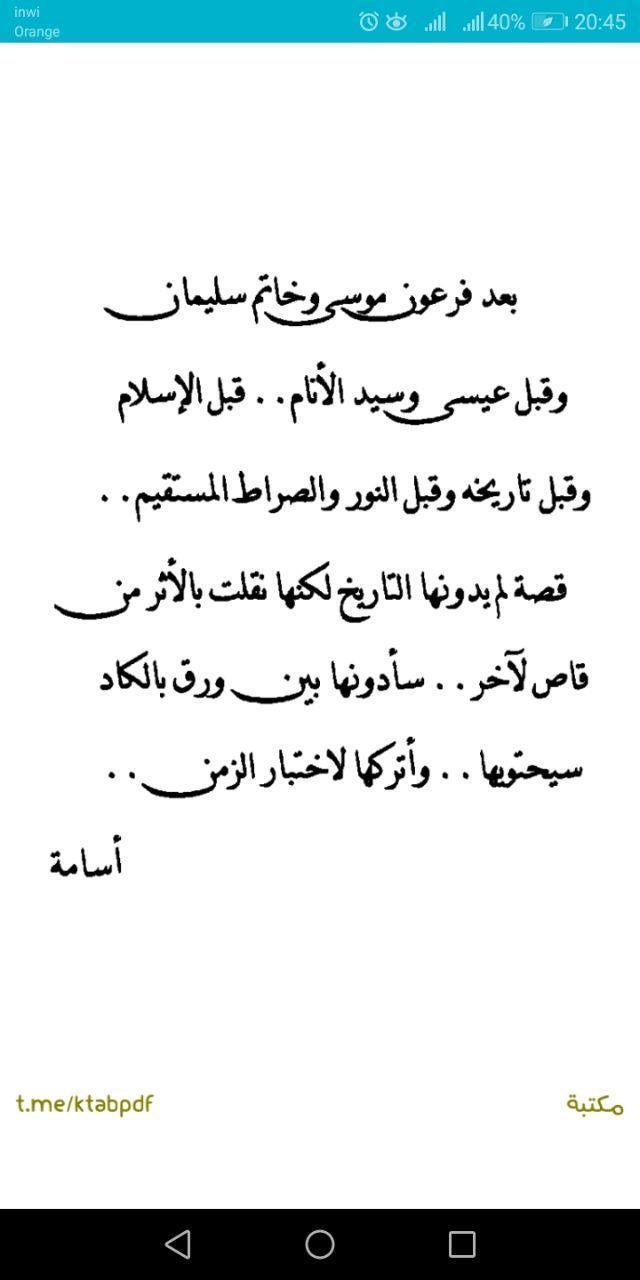 inwi
Orange
40% 20:45
بعد فرعون موسى وخاتم سليمان
وقبل عيسى وسيد الأنام.. قبل الإسلام
وقبل تاريخه وقبل النور والصراط المستقيم..
قصة لم يدونها التاريخ لكنها نقلت بالأثر من
قاص لآخر.. سأدونها بين ورق بالكاد
سيحتويها.. وأتركها لاختبار الزمن..
أسامة
مكتبة t.me/ktabpdf